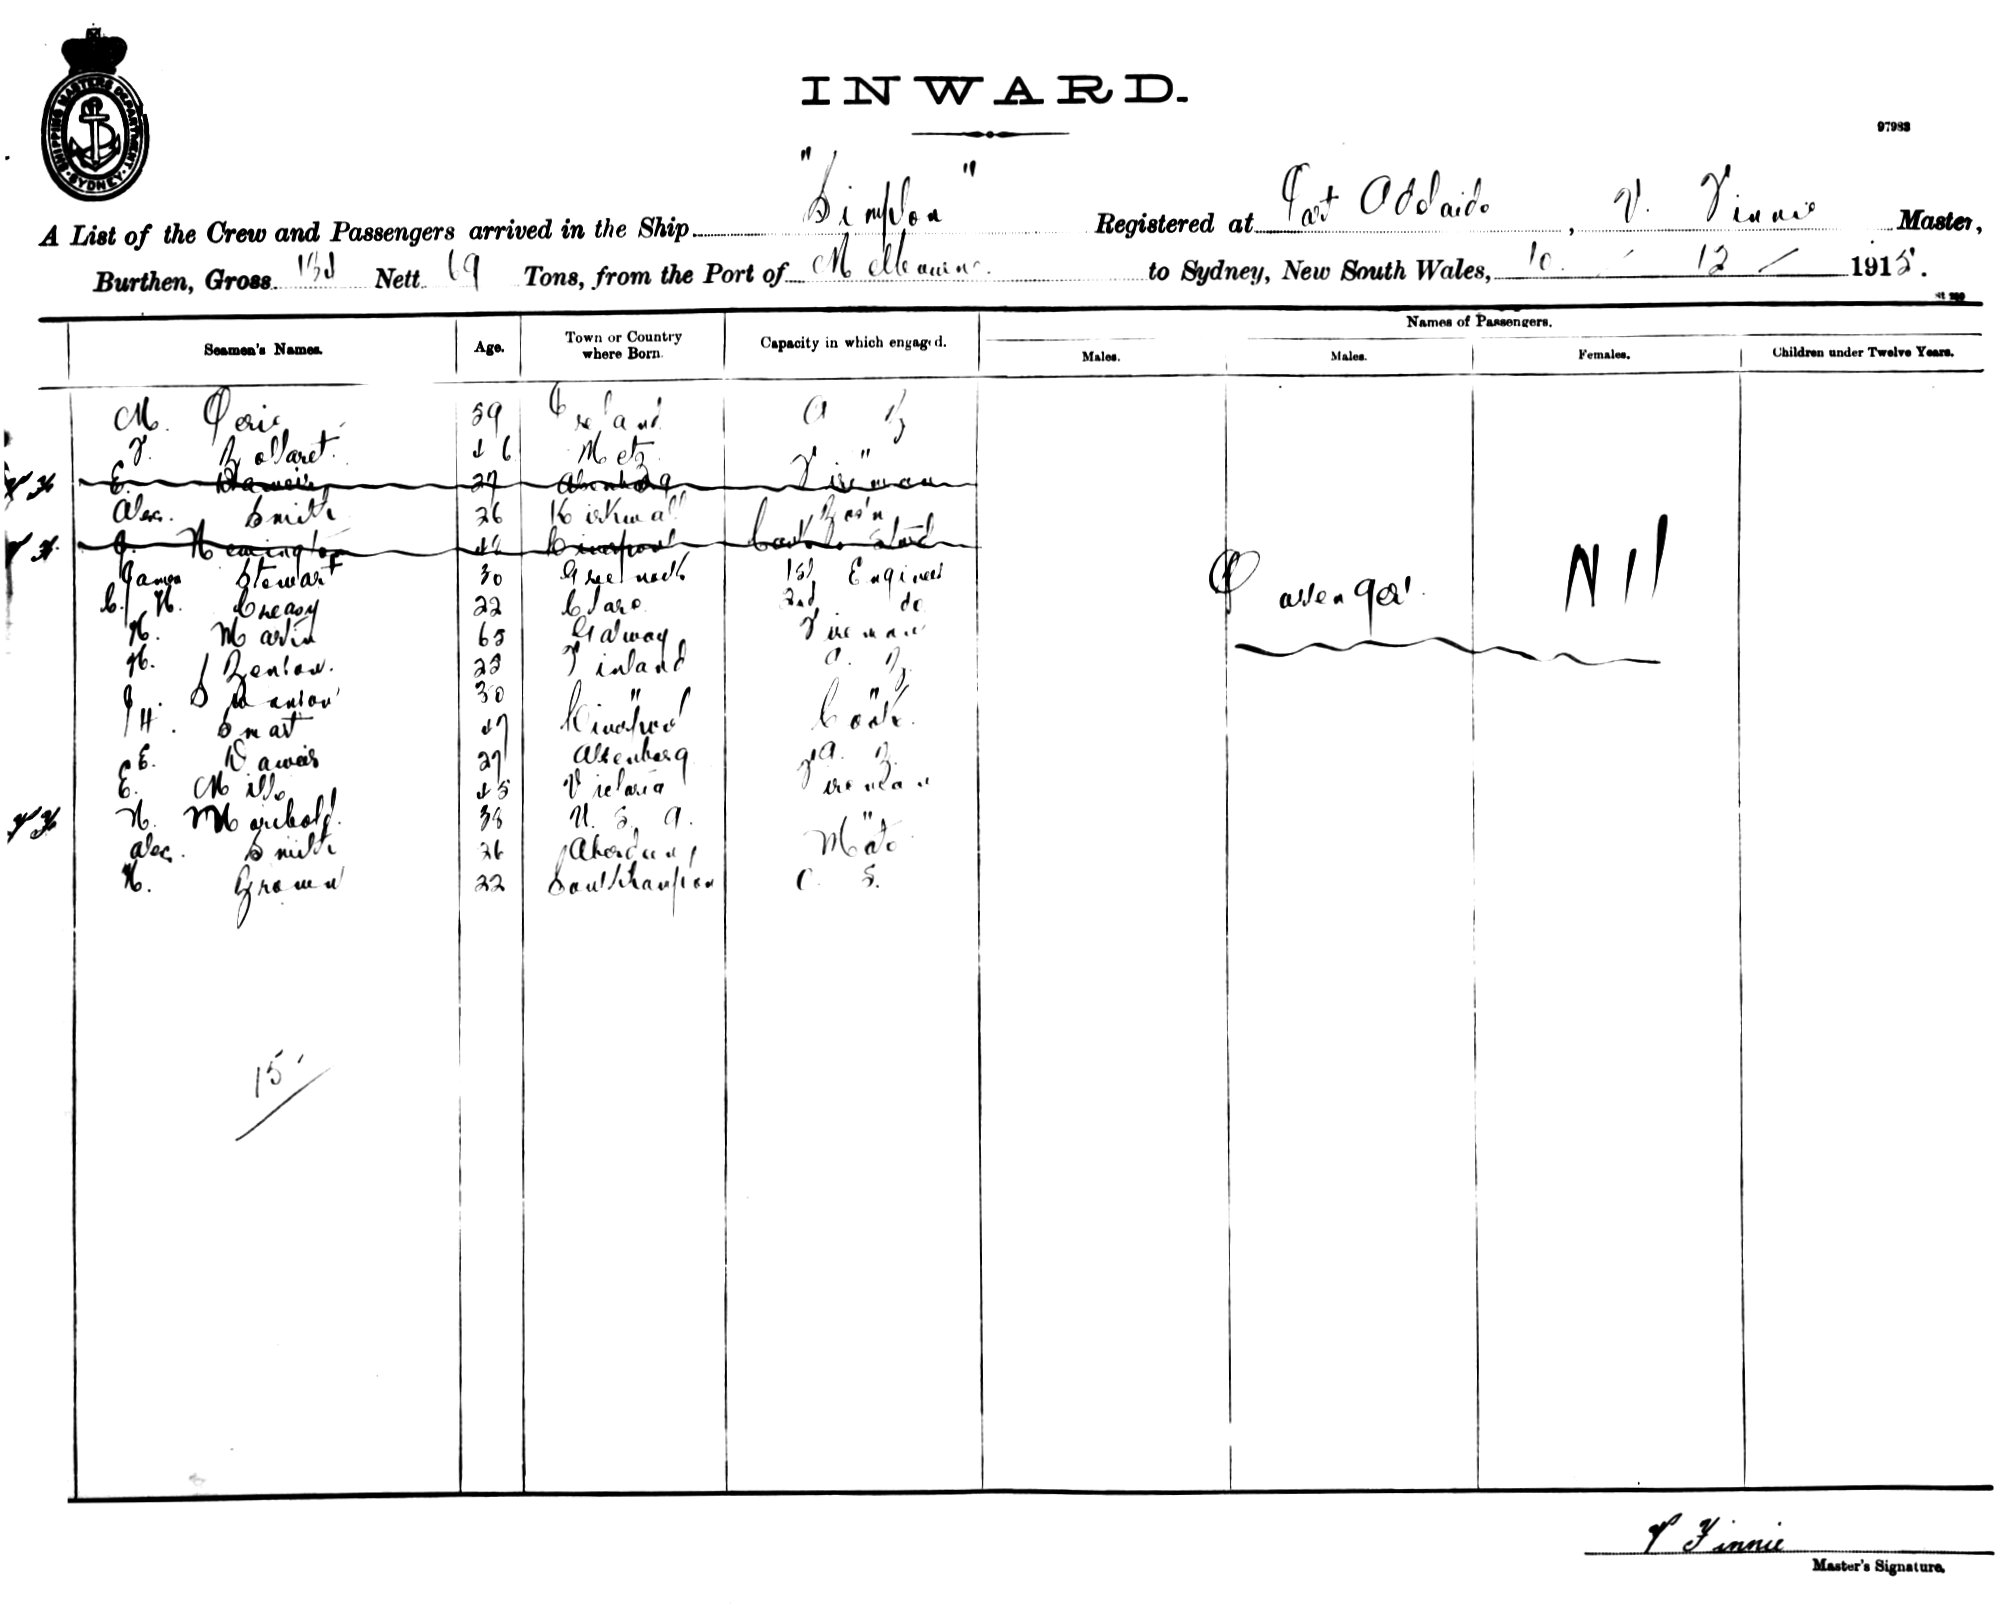 SHIPPING MASTERS DEPARTMENT SYDNEY
INWARD.
97983
A List of the Crew and Passengers arrived in the Ship "Simplon" Registered at Port Adelaide, V. Finnie Master,
Burthen, Gross Nett 69 Tons, from the Port of Melbourne to Sydney, New South Wales, 10 - 12 - 1915.
Seamen's Names. Age. Town or Country where Born. Capacity in which engaged. Names of Passengers.
Males. Males. Females. Children under Twelve Years.
M. 59 Ireland A B
46 Metz "
E. Daweis 27 Fireman
Alex. Smith 26 Kirkwall Bos'n
J. Hemington 48 Liverpool Cook & Steward
James Stewart 30 Greenock 1st Engineer
C. H. Creasy 22 Clare 2nd do
H. Martin 65 Galway Fireman
H. Benton. 23 Finland A. B.
J. Swanson 30 " "
H. Smart 47 Liverpool Cook.
E. Daweis 27 A. B.
E. Mills 45 Victoria Fireman
H. 38 U. S. A. "
Alex. Smith 26 Aberdeen Mate
H. Brown 22 Southampton O. S.
Passengers Nil
15
V Finnie
Master's Signature.